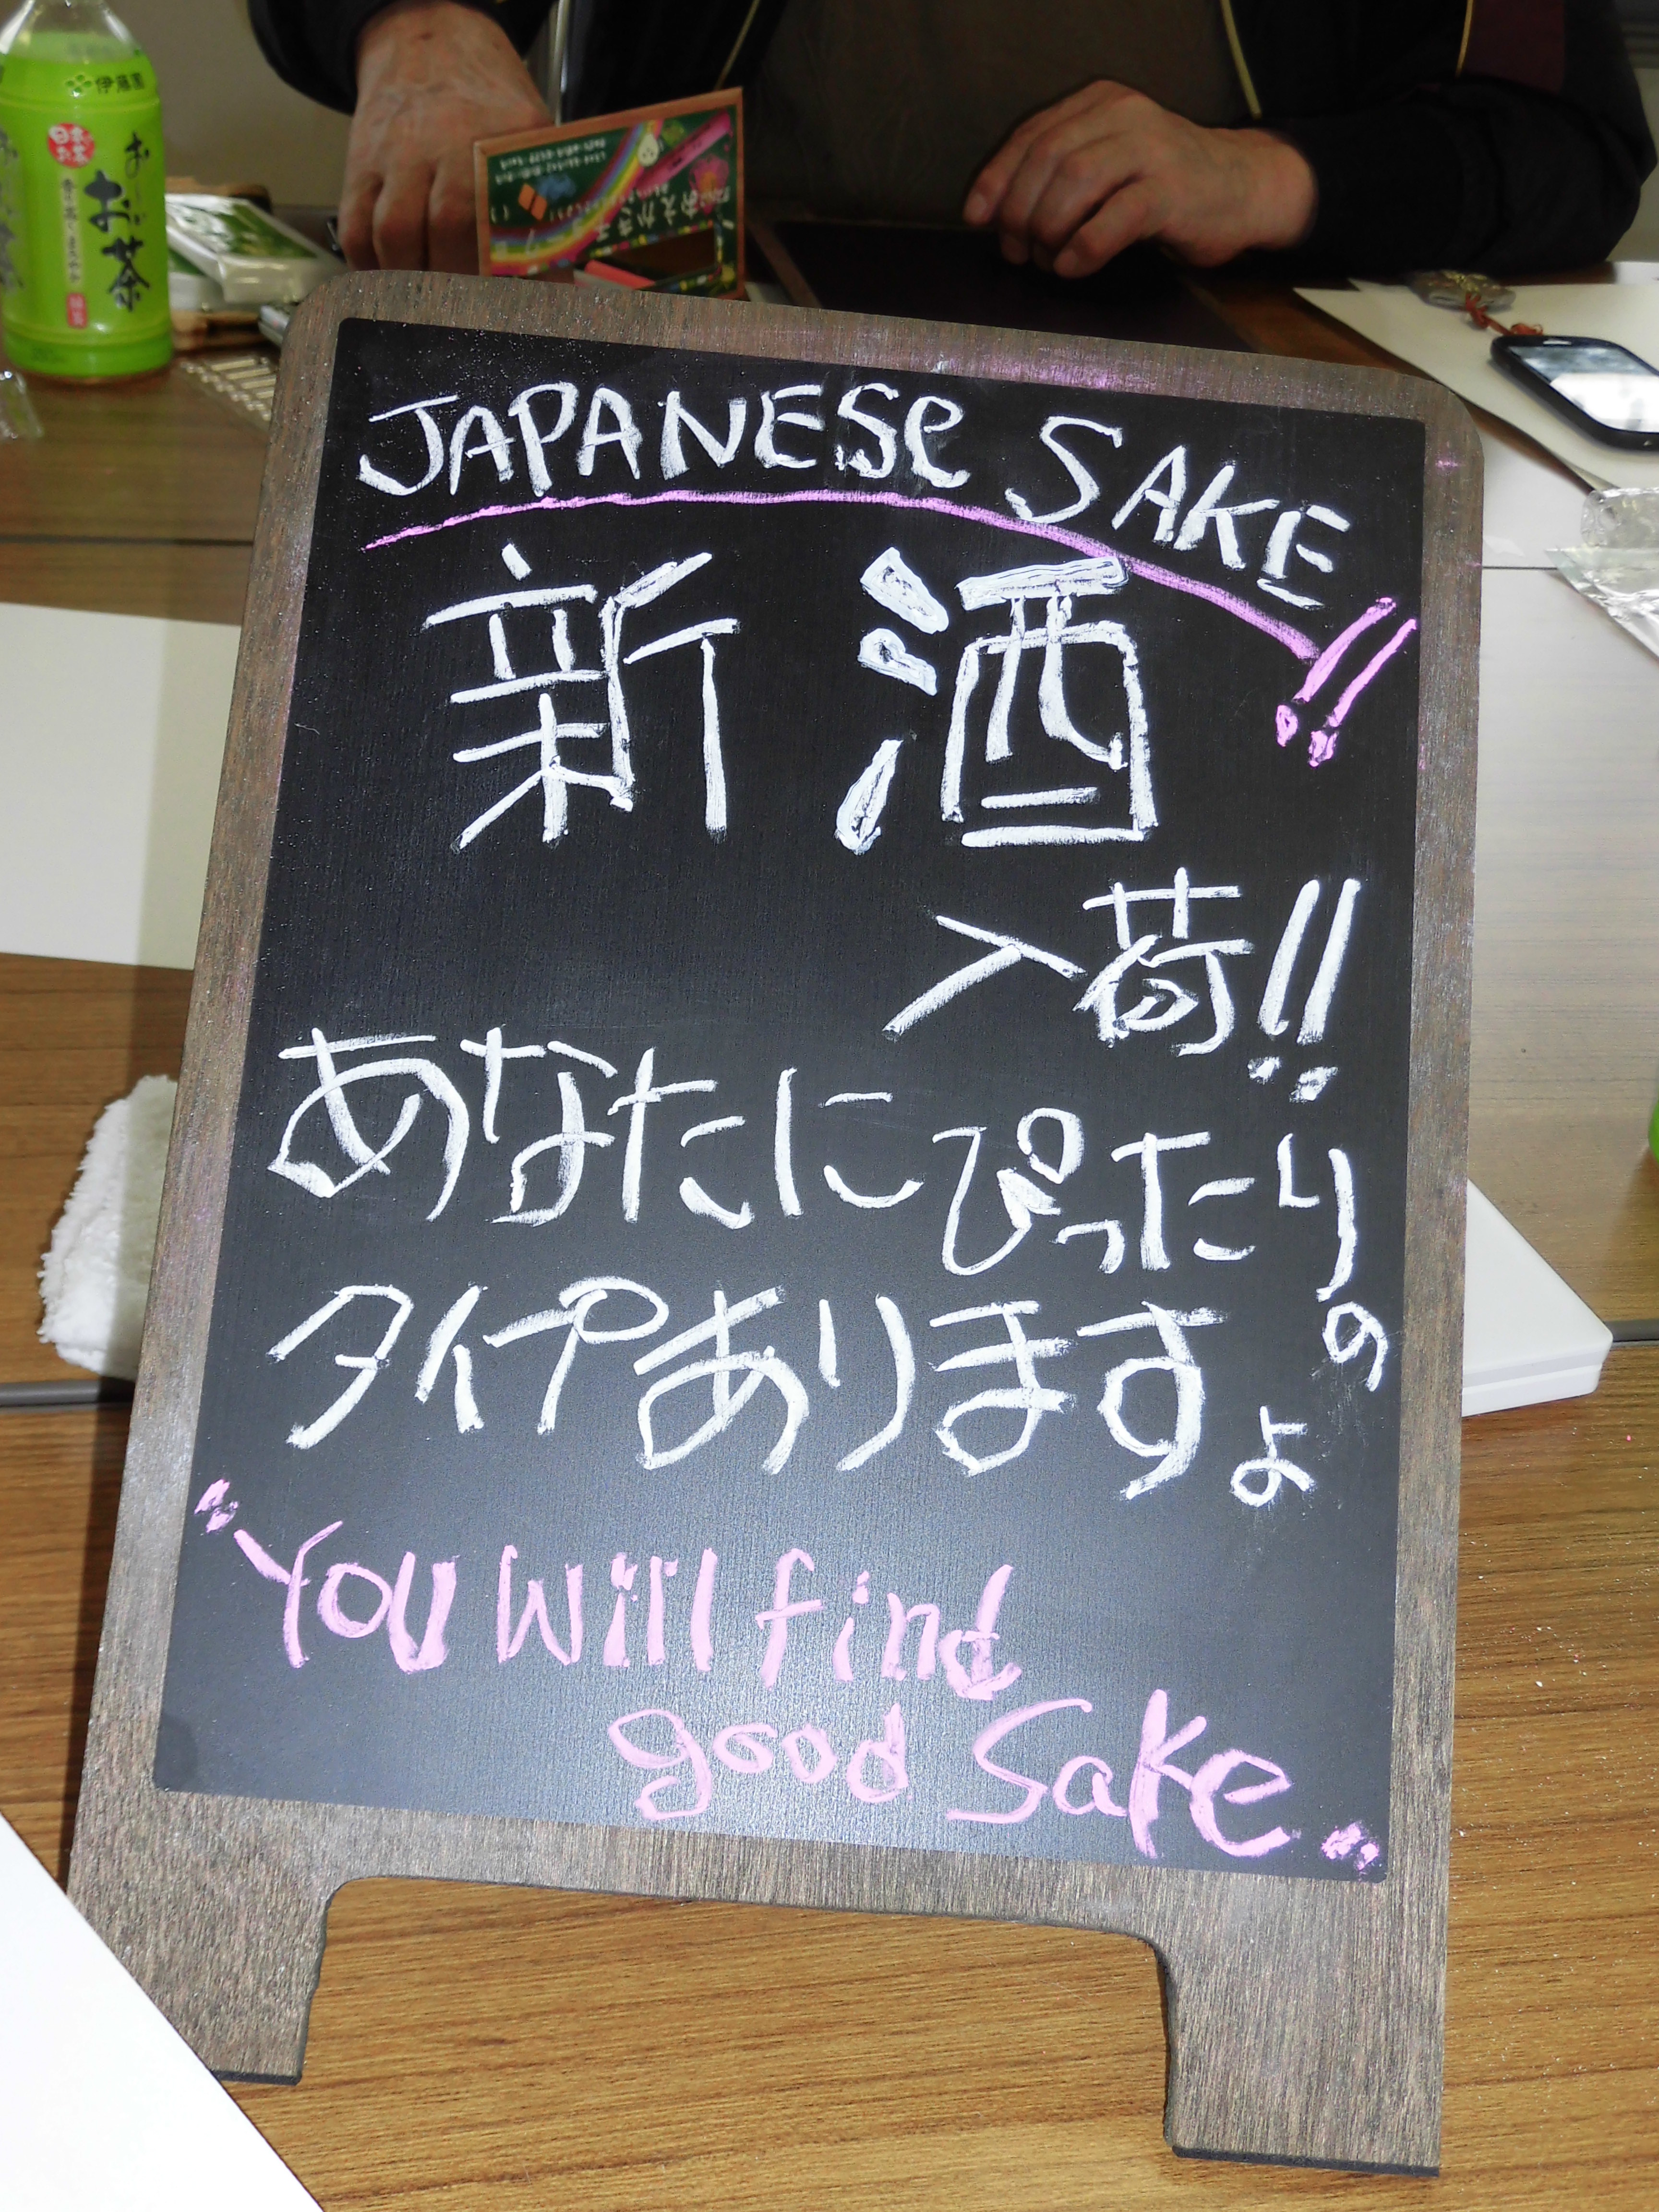 伊藤園
日本の
お茶
お〜い
お茶
JAPANESe SAKE
新酒
入荷!!
あなたにぴったりの
タイプありますよ
"YOU Will find
good Sake"